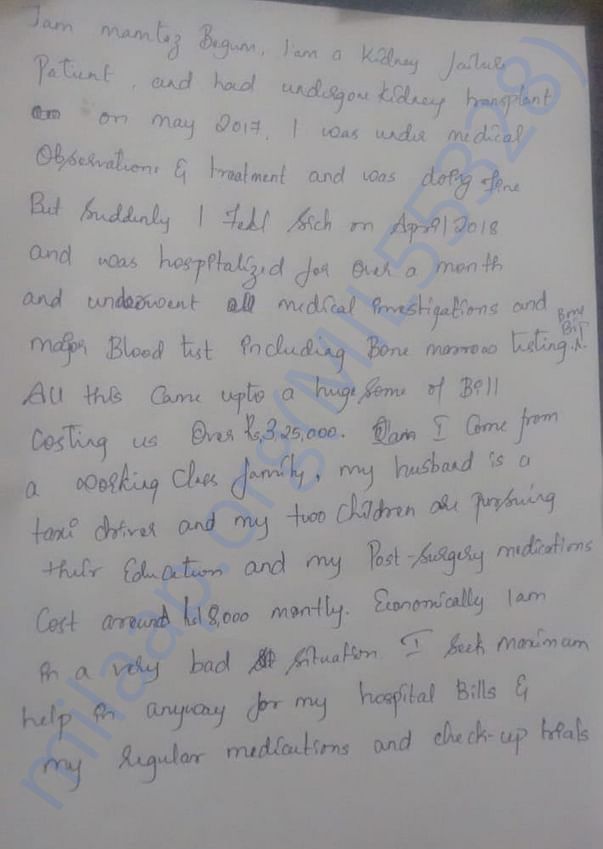 I am mamtaz Begum, I am a kidney failure
Patient, and had undergone kidney transplant
on may 2017. I was under medical
Observations & treatment and was doing fine
But Suddenly I Fell Sick on April 2018
and was hospitalized for over a month
and underwent all medical investigations and
major Blood test including Bone marrow testing & Bone BiT
All this Came upto a huge Some of Bill
Costing us Over Rs,3,25,000. I Come from
a working Class family, my husband is a
taxi driver and my two Children are pursuing
their Education and my Post-Surgery medications
Cost around Rs18,000 montly. Economically I am
in a very bad situation I Seek maximum
help in anyway for my hospital Bills &
my regular medications and check-up trials
milaap.org(MIL55328)